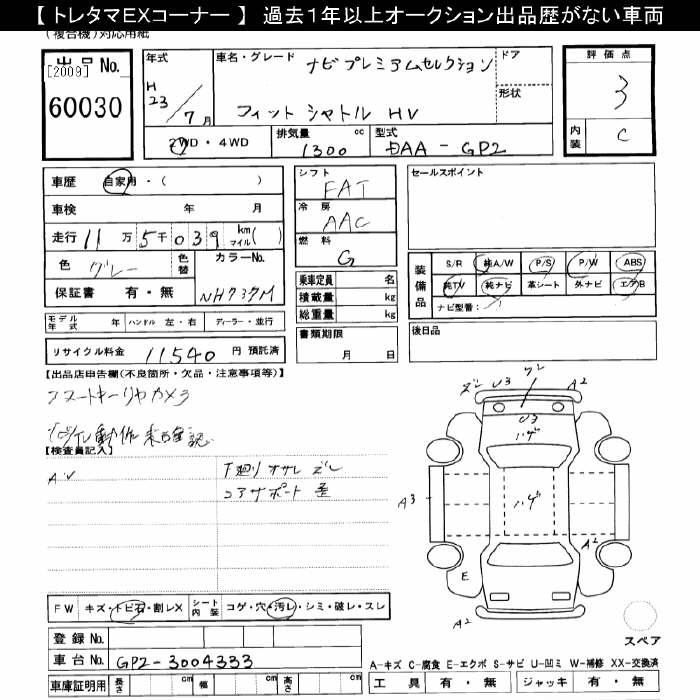 【 トレタマEXコーナー 】 過去１年以上オークション出品歴がない車両
(複合機)対応用紙
出品 No.
[2009]
60030
年式
H
23/7月
車名・グレード
ナビプレミアムセレクション
フィットシャトル HV
ドア
形状
評価点
3
内装
C
2WD・4WD
排気量
1300
cc
型式
DAA - GP2
車歴
自家用・(　　)
車検
年　月
走行
11万5千039
km
マイル( )
色
グレー
色替
カラーNo.
NH737M
保証書
有・無
モデル年式
年
ハンドル 左・右
ディーラー・並行
リサイクル料金
11540
円 預託済
シフト
FAT
冷房
AAC
燃料
G
乗車定員
名
積載量
kg
総重量
kg
書類期限
月　日
セールスポイント
装備品
S/R
純A/W
P/S
P/W
ABS
純TV
純ナビ
革シート
外ナビ
エアB
ナビ型番：
後日品
【出品店申告欄(不良箇所・欠品・注意事項等)】
スマートキーリヤカメラ
動作未確認
【検査員記入】
下廻り オサレ ズレ
コアサポート 歪
ズレ
U3
ズレ
A2
U3
ハゲ
A3
ハゲ
A2
E
A2
スペア
FW
キズ・トビ石・割レX
シート内装
コゲ・穴・汚レ・シミ・破レ・スレ
登録 No.
車台 No.
GP2-3004333
車庫証明用
長さ
cm
幅
cm
高さ
cm
A-キズ C-腐食 E-エクボ S-サビ U-凹ミ W-補修 XX-交換済
工具
有・無
ジャッキ
有・無